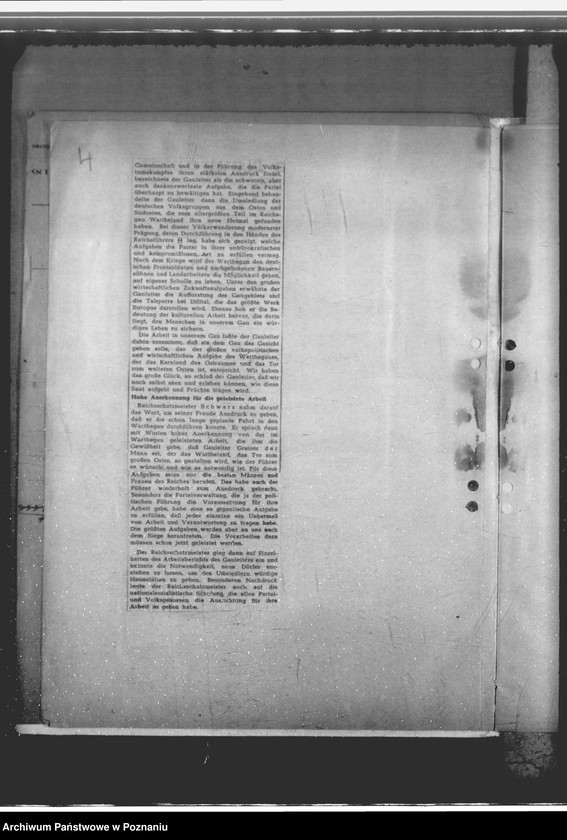 4
Gemeinschaft und in der Führung des Volks-
tumskampfes ihren stärksten Ausdruck findet,
bezeichnete der Gauleiter als die schwerste, aber
auch dankenswerteste Aufgabe, die die Partei
überhaupt zu bewältigen hat. Eingehend behan-
delte der Gauleiter dann die Umsiedlung der
deutschen Volksgruppen aus dem Osten und
Südosten, die zum allergrößten Teil im Reichs-
gau Wartheland ihre neue Heimat gefunden
haben. Bei dieser Völkerwanderung modernster
Prägung, deren Durchführung in den Händen des
Reichsführers ᛋᛋ lag, habe sich gezeigt, welche
Aufgaben die Partei in ihrer unbürokratischen
und kompromißlosen Art zu erfüllen vermag.
Nach dem Kriege wird der Warthegau den deut-
schen Frontsoldaten und nachgeborenen Bauern-
söhnen und Landarbeitern die Möglichkeit geben,
auf eigener Scholle zu leben. Unter den großen
wirtschaftlichen Zukunftsaufgaben erwähnte der
Gauleiter die Aufforstung des Gaugebiets und
die Talsperre bei Dilltal, die das größte Werk
Europas darstellen wird. Ebenso hob er die Be-
deutung der kulturellen Arbeit hervor, die darin
liegt, den Menschen in unserem Gau ein wür-
diges Leben zu sichern.
Die Arbeit in unserem Gau faßte der Gauleiter
dahin zusammen, daß sie dem Gau das Gesicht
geben solle, das der großen volkspolitischen
und wirtschaftlichen Aufgabe des Warthegaues,
der das Kernland des Ostraumes und das Tor
zum weiteren Osten ist, entspricht. Wir haben
das große Glück, so schloß der Gauleiter, daß wir
noch selbst säen und erleben können, wie diese
Saat aufgeht und Früchte tragen wird.
Hohe Anerkennung für die geleistete Arbeit
Reichsschatzmeister Schwarz nahm darauf
das Wort, um seiner Freude Ausdruck zu geben,
daß er die schon lange geplante Fahrt in den
Warthegau durchführen konnte. Er sprach dann
mit Worten hoher Anerkennung von der im
Warthegau geleisteten Arbeit, die ihm die
Gewißheit gebe, daß Gauleiter Greiser der
Mann sei, der das Wartheland, das Tor zum
großen Osten, so gestalten wird, wie der Führer
es wünscht und wie es notwendig ist. Für diese
Aufgaben seien nur die besten Männer und
Frauen des Reiches berufen. Das habe auch der
Führer wiederholt zum Ausdruck gebracht.
Besonders die Parteiverwaltung, die ja der poli-
tischen Führung die Voraussetzung für ihre
Arbeit gebe, habe eine so gigantische Aufgabe
zu erfüllen, daß jeder einzelne ein Uebermaß
von Arbeit und Verantwortung zu tragen habe.
Die größten Aufgaben werden aber an uns nach
dem Siege herantreten. Die Vorarbeiten dazu
müssen schon jetzt geleistet werden.
Der Reichsschatzmeister ging dann auf Einzel-
heiten des Arbeitsberichts des Gauleiters ein und
betonte die Notwendigkeit, neue Dörfer ent-
stehen zu lassen, um den Umsiedlern würdige
Heimstätten zu geben. Besonderen Nachdruck
legte der Reichsschatzmeister auch auf die
nationalsozialistische Schulung, die allen Partei-
und Volksgenossen die Ausrichtung für ihre
Arbeit zu geben habe.
Archiwum Państwowe w Poznaniu